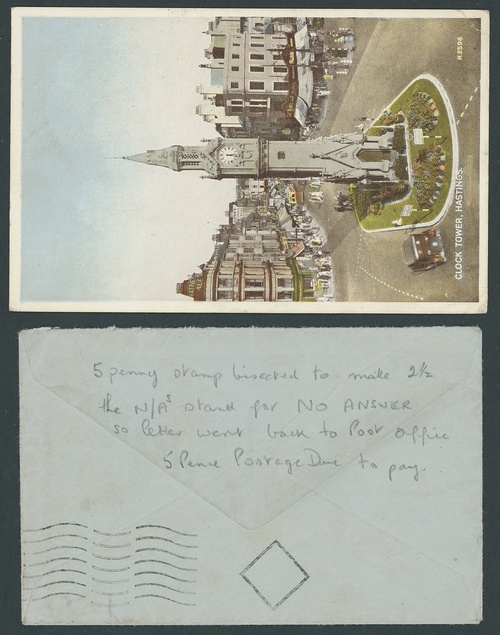 H2596
CLOCK TOWER, HASTINGS
5 penny stamp bisected to make 2½
the N/A's stand for NO ANSWER
so letter went back to Post office
5 Pence Postage Due to pay.